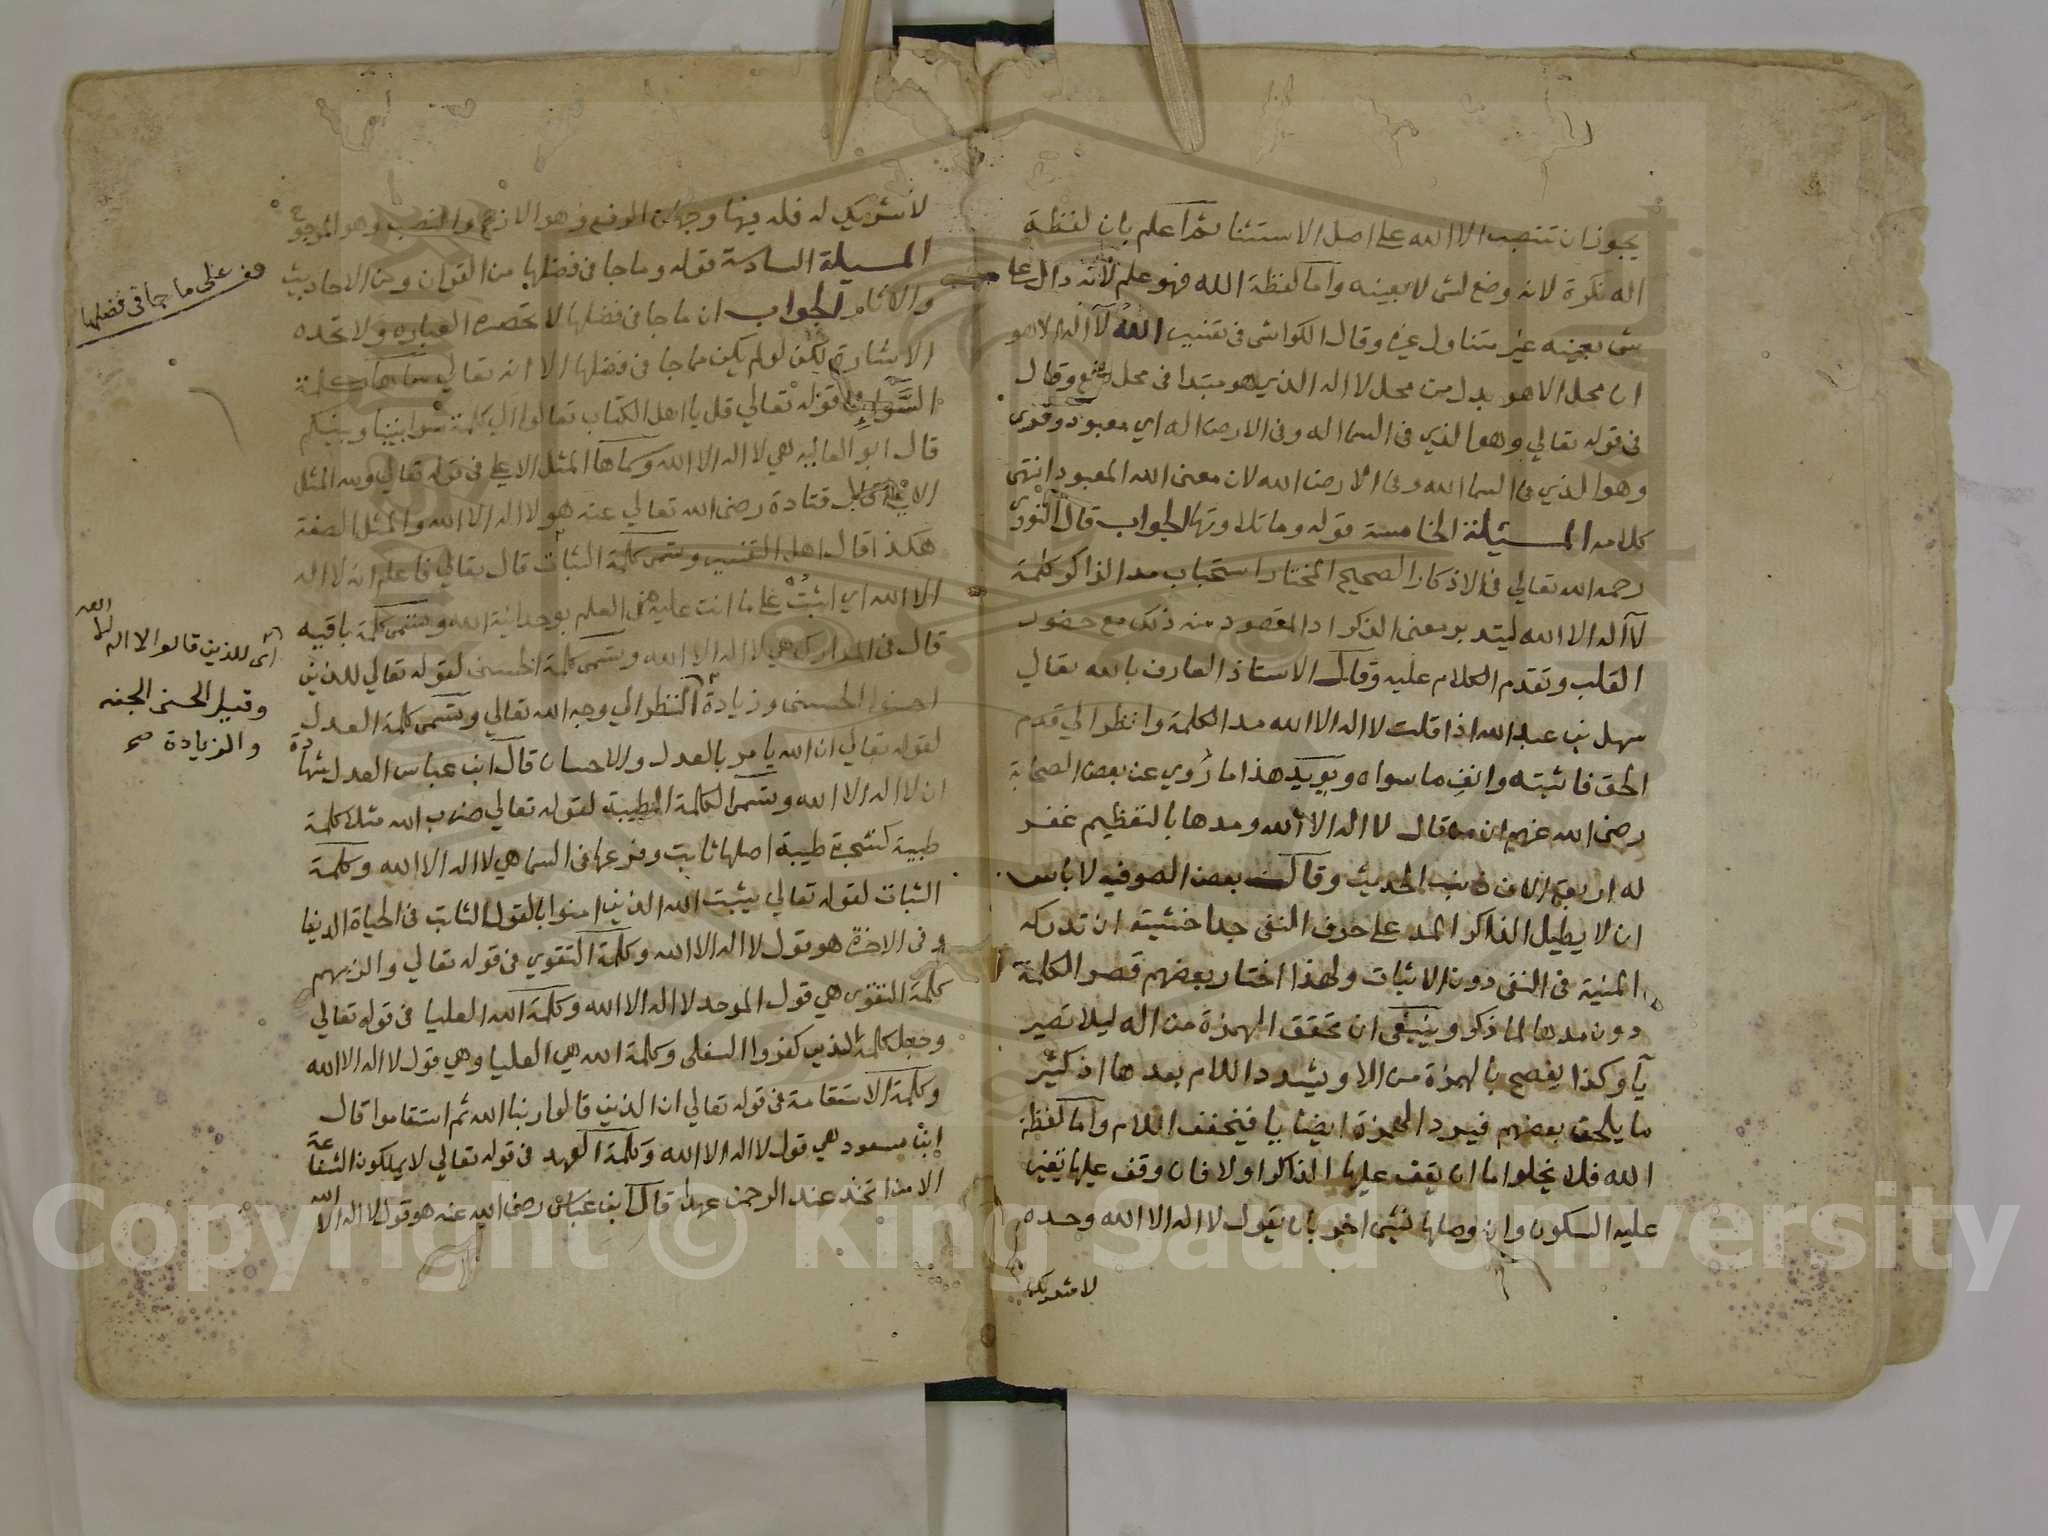 يجوز ان تنصب الا الله على اصل الاستثنا ثم اعلم بان لفظة
اله نكرة لانه وضع لشى لا بعينه واما لفظة الله فهو علم لانه دال على
شى بعينه غير متناول غيره وقال الكواشى فى تفسير الله لا اله الا هو
ان محل الا هو بدل من محل لا اله الذي هو مبتدا فى محل رفع وقال
فى قوله تعالي وهو الذي فى السما اله وفى الارض اله اي معبود وقرى
وهو الذي فى السما الله وفى الارض الله لان معنى الله المعبود انتهى
كلامه المسيلة الخامسة قوله وما تلاوتها الجواب قال النووى
رحمه الله تعالي فى الاذكار الصحيح المختار استحباب مد الذاكر كلمة
لا اله الا الله ليتدبر معنى الذكر اذ المقصود منه ذلك مع حضور
القلب وتقدم الكلام عليه وقال الاستاذ العارف بالله تعالي
سهل بن عبد الله اذا قلت لا اله الا الله مد الكلمة وانظر الي قدم
الحق فاثبته وانف ما سواه ويويد هذا ما روي عن بعض الصحابة
رضى الله عنهم ان من قال لا اله الا الله ومدها بالتعظيم غفر
له اربعة الاف ذنب الحديث وقال بعض الصوفيه لا باس
ان لا يطيل الذاكر المد على حرف النفى جدا خشية ان تدركه
المنية فى النفى دون الاثبات ولهذا اختار بعضهم قصر الكلمة
دون مدها لما ذكر وينبغى ان تحقق الهمزة من اله ليلا تصير
يا وكذا يفصح بالهمزة من الا ويشدد اللام بعدها اذ كثير
ما يلحن بعضهم فيرد الهمزة ايضا يا فيخفف اللام واما لفظة
الله فلا يخلوا ما ان يقف عليها الذاكر او لا فان وقف عليها تعين
عليه السكون وان وصلها بشى اخر بان يقول لا اله الا الله وحده
لا شريك
لا شريك له فله فيها وجهان الرفع وهو الارجح والنصب وهو المرجوح
المسيلة السادسة قوله وما جا فى فضلها من القران ومن الاحاديث
والاثار الجواب ان ما جا فى فضلها لا تحصره العباره ولا تحده
الاشارة لكن لو لم يكن مما جا فى فضلها الا انه تعالي سماها كلمة
السواء قوله تعالي قل يا اهل الكتاب تعالوا الي كلمة سوا بيننا وبينكم
قال ابو العاليه هي لا اله الا الله وسماها المثل الاعلي فى قوله تعالي ولله المثل
الاعلى قال قتادة رضى الله تعالي عنه هو لا اله الا الله والمثل الصفة
هكذا قال اهل التفسير وتسمى كلمة الثبات قال تعالي فاعلم انه لا اله
الا الله اي اثبت على ما انت عليه من العلم بوحدانية الله وتسمى كلمة باقيه
قال فى المدارك هي لا اله الا الله وتسمى كلمة الحسنى لقوله تعالي للذين
احسنوا الحسنى وزيادة النظر الي وجه الله تعالي وتسمى كلمة العدل
لقوله تعالي ان الله يامر بالعدل والاحسان قال ابن عباس العدل شهادة
ان لا اله الا الله وتسمى الكلمة الطيبة لقوله تعالي ضرب الله مثلا كلمة
طيبة كشجرة طيبة اصلها ثابت وفرعها فى السما هي لا اله الا الله وكلمة
الثبات لقوله تعالي يثبت الله الذين امنوا بالقول الثابت فى الحياة الدنيا
وفى الاخرة هو قول لا اله الا الله وكلمة التقوي فى قوله تعالي والزمهم
كلمة التقوى هي قول الموحد لا اله الا الله وكلمة الله العليا فى قوله تعالي
وجعل كلمة الذين كفروا السفلى وكلمة الله هي العليا وهي قول لا اله الا الله
وكلمة الاستقامة فى قوله تعالي ان الذين قالوا ربنا الله ثم استقاموا قال
ابن مسعود هي قول لا اله الا الله وكلمة العهد فى قوله تعالي لا يملكون الشفاعة
الا من اتخذ عند الرحمن عهدا قال ابن عباس رضى الله عنه هو قول لا اله الا الله
قف على ما جا فى فضلها
اى للذين قالوا لا اله الا الله
وقيل الحسنى الجنه
والزيادة صح
Copyright © King Saud University